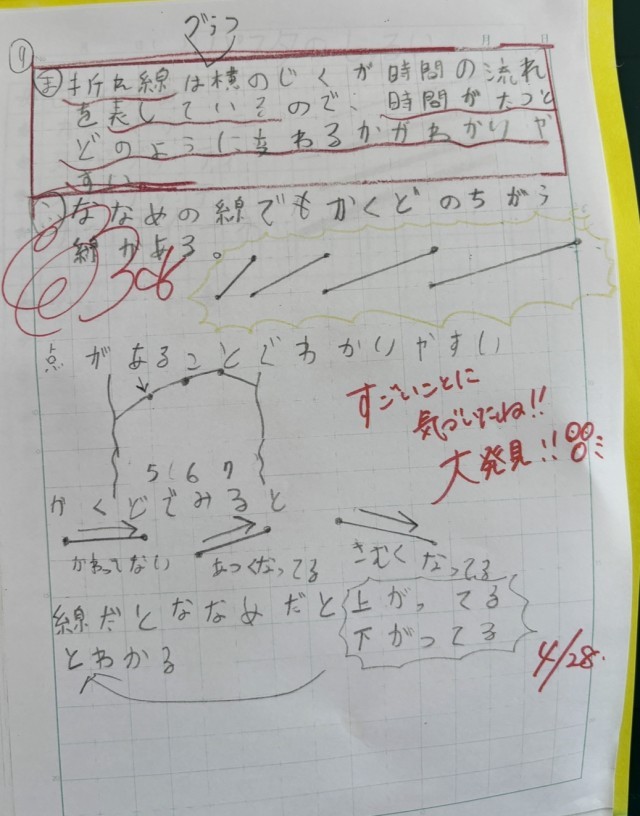 グラフ
9
ま 折れ線は横のじくが時間の流れ
を表しているので、時間がたつと
どのように変わるかがわかりや
すい
ななめの線でもかくどのちがう
線がある。
点があることでわかりやすい
すごいことに
気づいたね!!
大発見!!
5 6 7
かくどでみると
かわってない あつくなってる さむくなってる
線だとななめだと 上がってる
下がってる
とわかる
4/28.